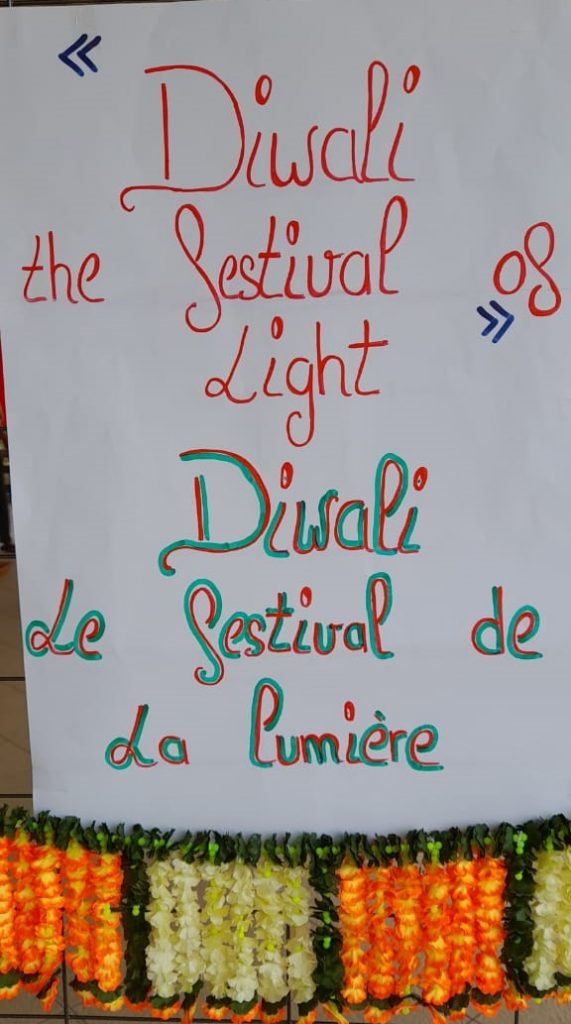 « Diwali
the festival of
Light »
Diwali
Le festival de
La lumière